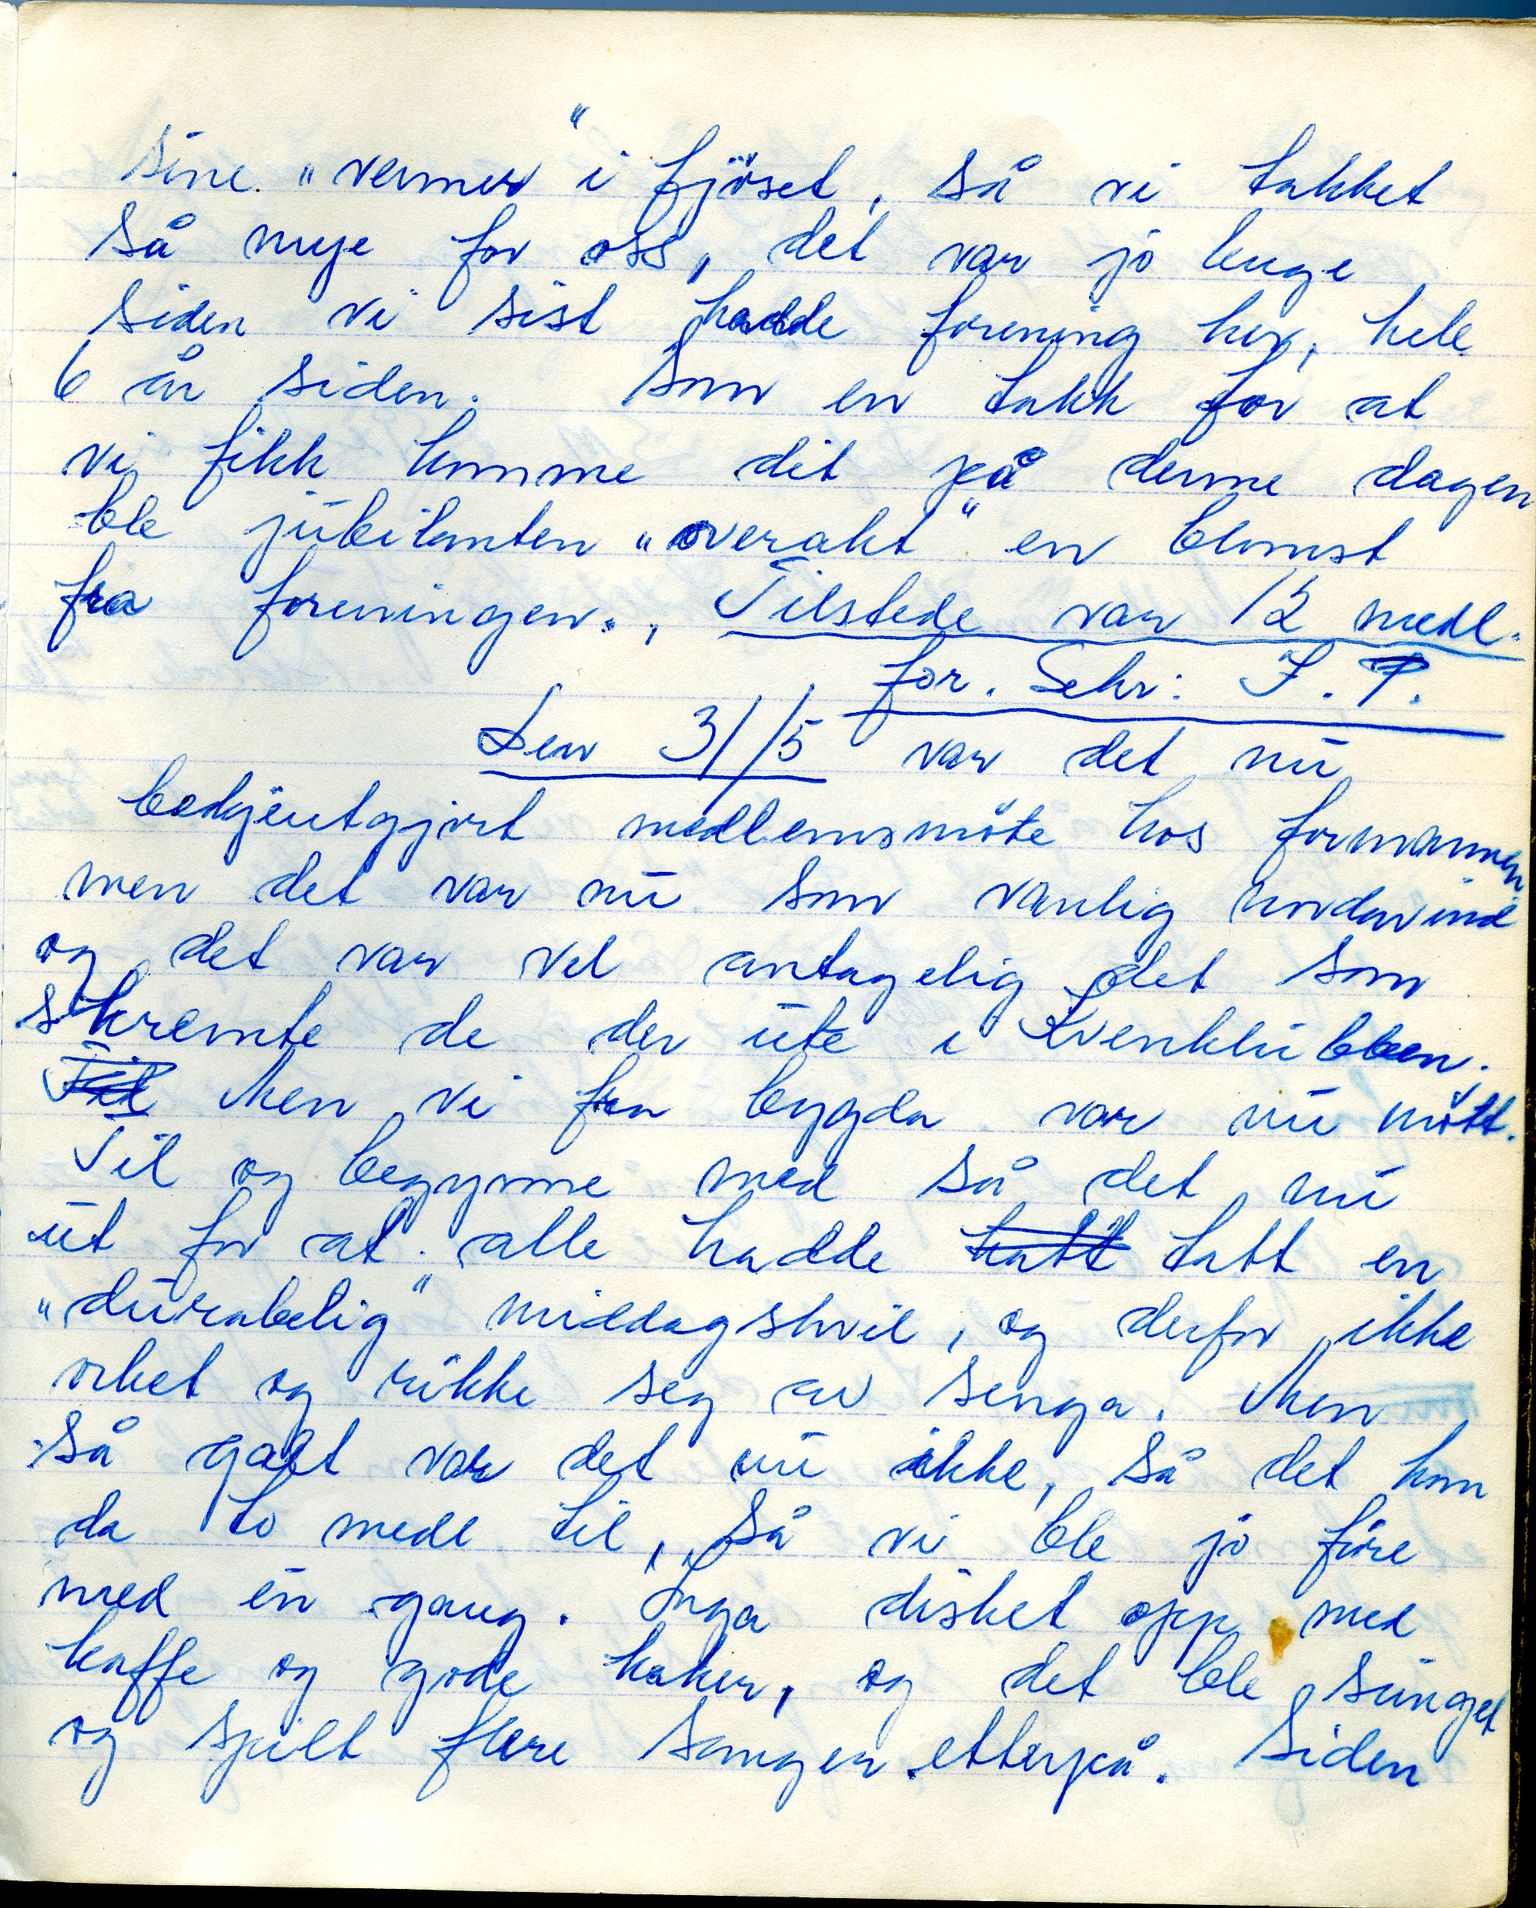 sine „venner" i fjöset, så vi takket
så mye for oss, det var jo lenge
siden vi sist hadde forening her, hele
6 år siden. Som en takk for at
vi fikk komme dit på denne dagen
ble jubilanten „overakt" en blomst
fra foreningen., Tilstede var 12 medl.
for. Sekr: I. P.
Den 31/5 var det nu
bedkjentgjort medlemsmöte hos formannen
men det var nu som vanlig nordavind
og det var vel antagelig det som
skremte de der ute i Kvenklubben.
Til Men vi fra bygda var nu mött.
Til og begynne med så det nu
ut for at alle hadde hatt tatt en
„durabelig" middagshvil, og derfor ikke
orket og rikke seg av senga. Men
så galt var det nu ikke, så det kom
da to medl til, så vi ble jo fire
med en gang. Inga disket opp med
kaffe og gode kaker, og det ble sunget
og spilt flere sanger etterpå. Siden